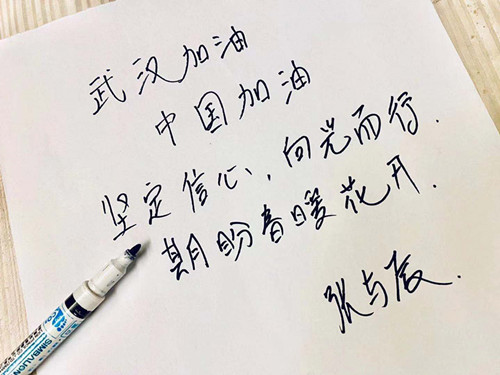 武汉加油
中国加油
坚定信心，向光而行.
期盼春暖花开.
张与辰.
SIMBALION